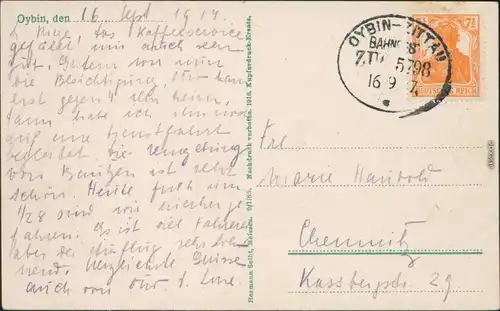 Oybin, den 16. Sept 1917
L. Max, das Kaffeeservice
gefällt mir auch sehr
gut. Gestern war nun
die Besichtigung, Wir kamen
erst gegen 4 Uhr heim,
dann habe ich ihn noch
auf eine Dienstfahrt
begleitet. Die Umgebung
von Bautzen ist sehr
schön. Heute früh um
1/28 sind wir hierher ge-
fahren. Es ist viel Fahren
aber der Ausflug sehr loh-
nend. Herzlichste Grüsse
auch von
Hermann Seibt, Meissen. Nachdruck verboten. 1916. Kupferdruck-Ersatz.
OYBIN-ZITTAU
BAHNPOST
ZUG 5798
16 9 17
7½ 7½
DEUTSCHES REICH
Frl.
Marie Haubold
Chemnitz
Kassbergstr. 29.